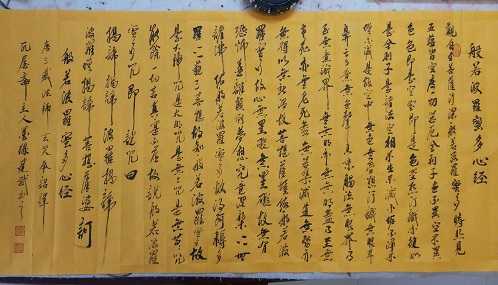 般若波羅蜜多心經
觀自在菩薩行深般若波羅蜜多時照見
五蘊皆空度一切苦厄舍利子色不異空空不異
色色即是空空即是色受想行識亦復如
是舍利子是諸法空相不生不滅不垢不淨不
增不減是故空中無色無受想行識無眼耳
鼻舌身意無色聲香味觸法無眼界乃
至無意識界無無明亦無無明盡乃至無
老死亦無老死盡無苦集滅道無智亦
無得以無所得故菩提薩埵依般若波
羅蜜多故心無罣礙無罣礙故無有
恐怖遠離顛倒夢想究竟涅槃三世
諸佛依般若波羅蜜多故得阿耨多
羅三藐三菩提故知般若波羅蜜多
是大神咒是大明咒是無上咒是無等等咒
能除一切苦真實不虛故說般若波羅
蜜多咒即說咒曰
揭諦揭諦 波羅揭諦
波羅僧揭諦 菩提薩婆訶
般若波羅蜜多心經
唐三藏法師玄奘奉詔譯
主人